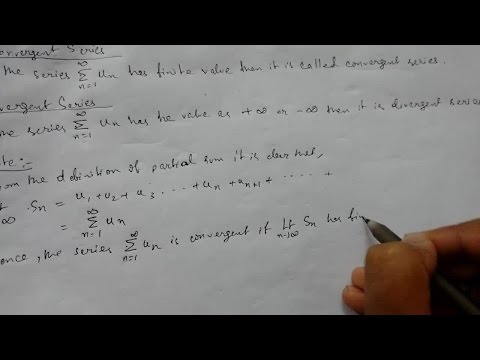 onvergent Series
the series ∑_{n=1}^{∞} un has finite value then it is called convergent series.
vergent Series
he series ∑_{n=1}^{∞} un has he value as +∞ or -∞ then it is divergent series
te:-
rom the definition of partial sum it is clear that,
t ∞ Sn = u1 + u2 + u3 ... + un + un+1 + ..... +
= ∑_{n=1}^{∞} un
ence, the series ∑_{n=1}^{∞} un is convergent if Lt_{n→∞} Sn has fin